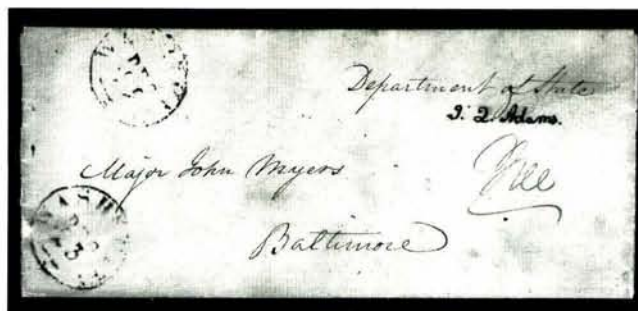 Department of State
J. Q. Adams.
Free
Major John Myers
Baltimore